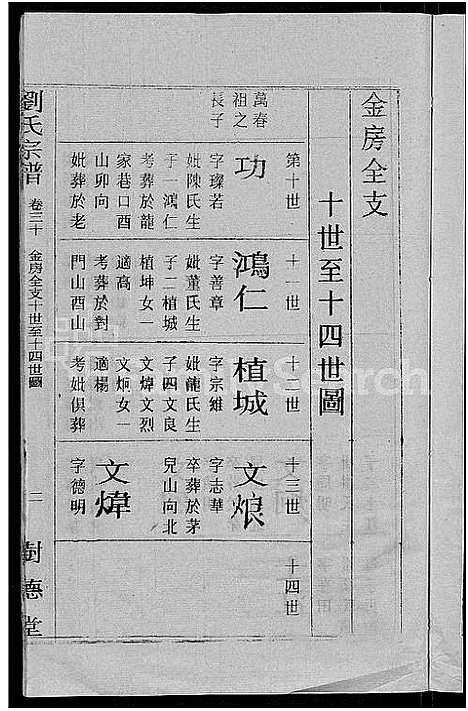 金房全支
十世至十四世圖
第十世
十一世
十二世
十三世
十四世
萬春
祖之
長子
功
字璨若
妣陳氏生
子一鴻仁
考葬於龍
家巷口酉
山卯向
妣葬於老
鴻仁
字善章
妣董氏生
子二植城
植坤女一
適高
考葬於對
門山酉山
植城
字宗維
妣龍氏生
子四文良
文煒文烈
文炯女一
適楊
考妣俱葬
文烺
字志華
卒葬於茅
兒山向北
文煒
字德明
劉氏宗譜
卷三十
金房全支十世至十四世圖
二
樹德堂